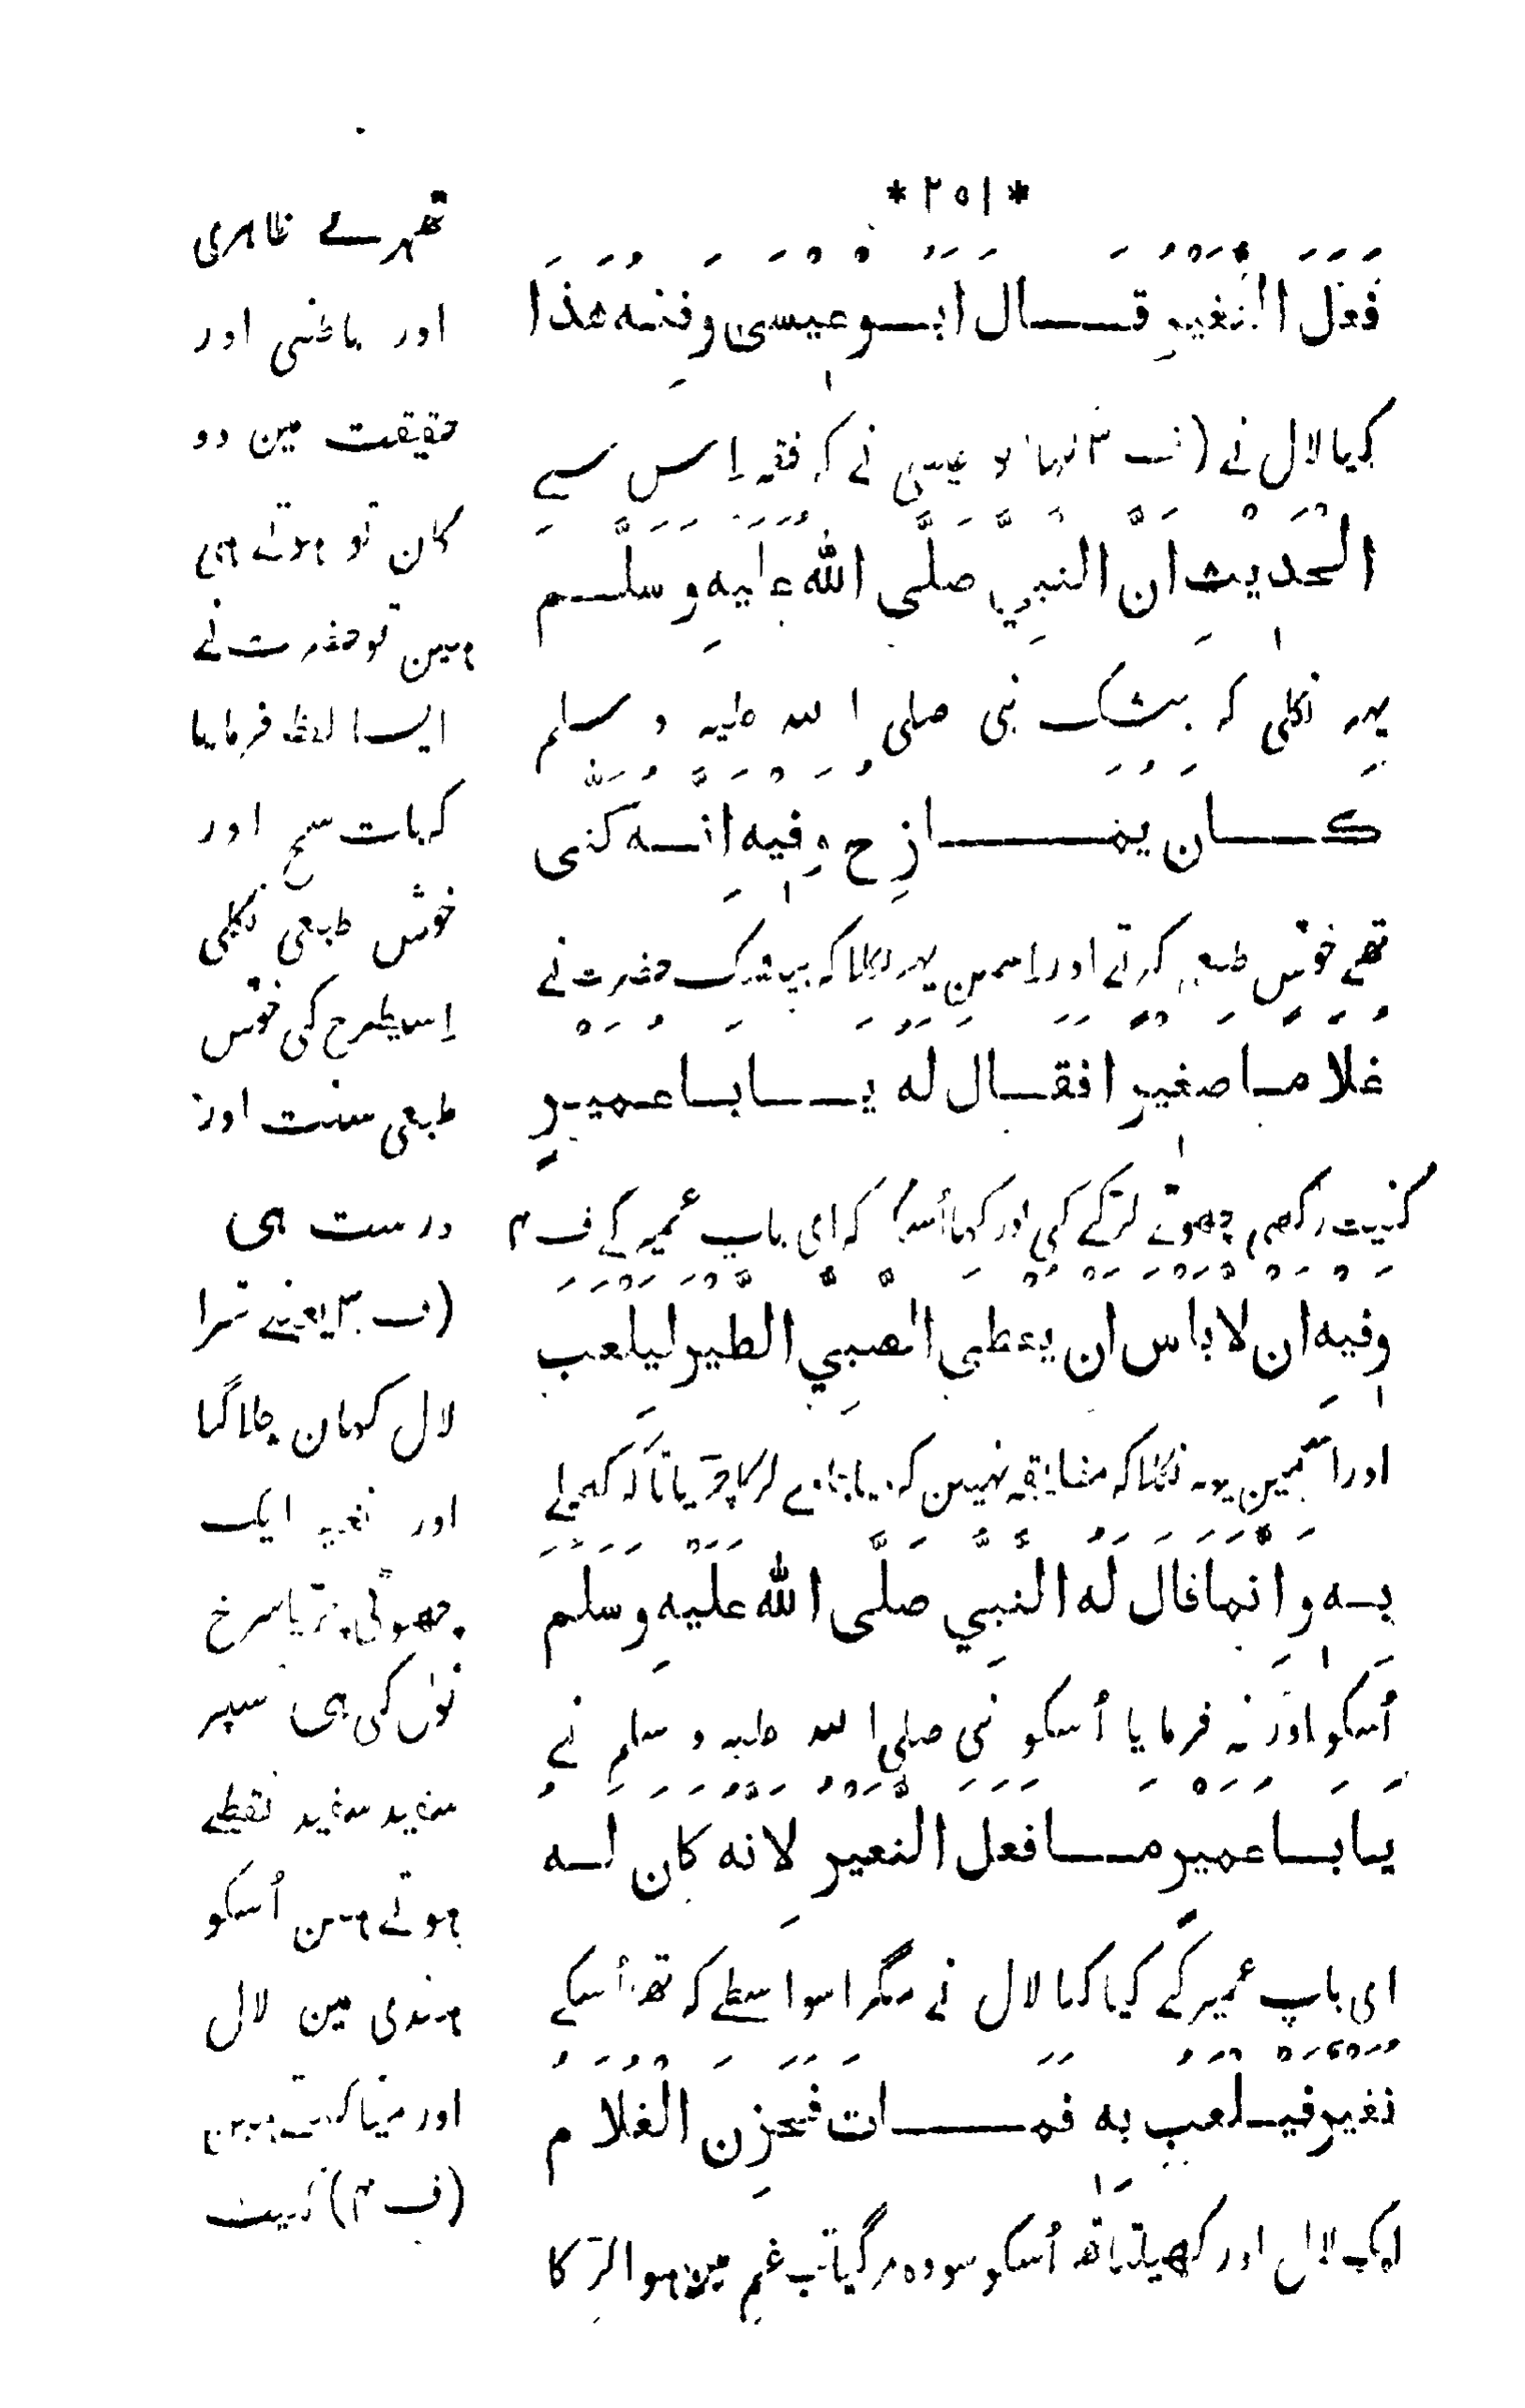 * ٢٥١ *
فَعَلَ النُّغَيْرُ قَالَ اَبُوْعِيْسٰى وَفِقْهُ هٰذَا
کیا لال نے (ف ٣ کہا ابو عیسی نے کہ فقہ اِس سے
الْحَدِيْثِ اَنَّ النَّبِيَّ صَلَّى اللّٰهُ عَلَيْهِ وَسَلَّمَ
یہہ نکلی کہ بیشک نبی صلی اللہ علیہ و سلم
كَانَ يُمَازِحُ وَفِيْهِ اِنَّهُ كَنّٰى
تھے خوش طبعی کرتے اور اِسمین یہہ نکلا کہ بیشک حضرت نے
غُلَامًا صَغِيْرًا فَقَالَ لَهُ يَابَاعُمَيْرٍ
کنیت رکھی چھوٹے لڑکے کی اور کہا اُسکو کہ ای باپ عمیر کے ف ۴
وَفِيْهِ اَنْ لَا بَاْسَ اَنْ يُعْطَى الصَّبِيُّ الطَّيْرَ لِيَلْعَبَ
اور اسمین یہہ نکلا کہ مضایقہ نہین کہ دیا جاوے لڑکا چڑیا تاکہ کھیلے
بِهٖ وَاِنَّمَا قَالَ لَهُ النَّبِيُّ صَلَّى اللّٰهُ عَلَيْهِ وَسَلَّمَ
اُسکو اور نہ فرمایا اُسکو نبی صلی اللہ علیہ و سلم نے
يَابَاعُمَيْرٍ مَا فَعَلَ النُّغَيْرُ لِاَنَّهُ كَانَ لَهُ
ای باپ عمیر کے کیا کیا لال نے مگر اسواسطے کہ تھا اُسکے
نُغَيْرٌ فَيَلْعَبُ بِهٖ فَمَاتَ فَحَزِنَ الْغُلَامُ
ایک لال اور کھیلتا تھا اُسکو سو وہ مرگیا تب غم مین ہوا لڑکا
تھہرے ظاہری
اور باطنی اور
حقیقت مین دو
کان تو ہوتے ہی
ہین تو حضرت نے
ایسا لفظ فرمایا
کہ بات سچ اور
خوش طبعی نکلی
اِسیطرح کی خوش
طبعی سنت اور
درست ہی
(ف ٣ یعنے تیرا
لال کہان چلا گیا
اور نغیر ایک
چھوٹی چڑیا سرخ
نول کی ہی سپر
سفید سفید نقطے
ہوتے ہین اُسکو
ہندی مین لال
اور منیا کہتے ہین
(ف ۴) کنیت